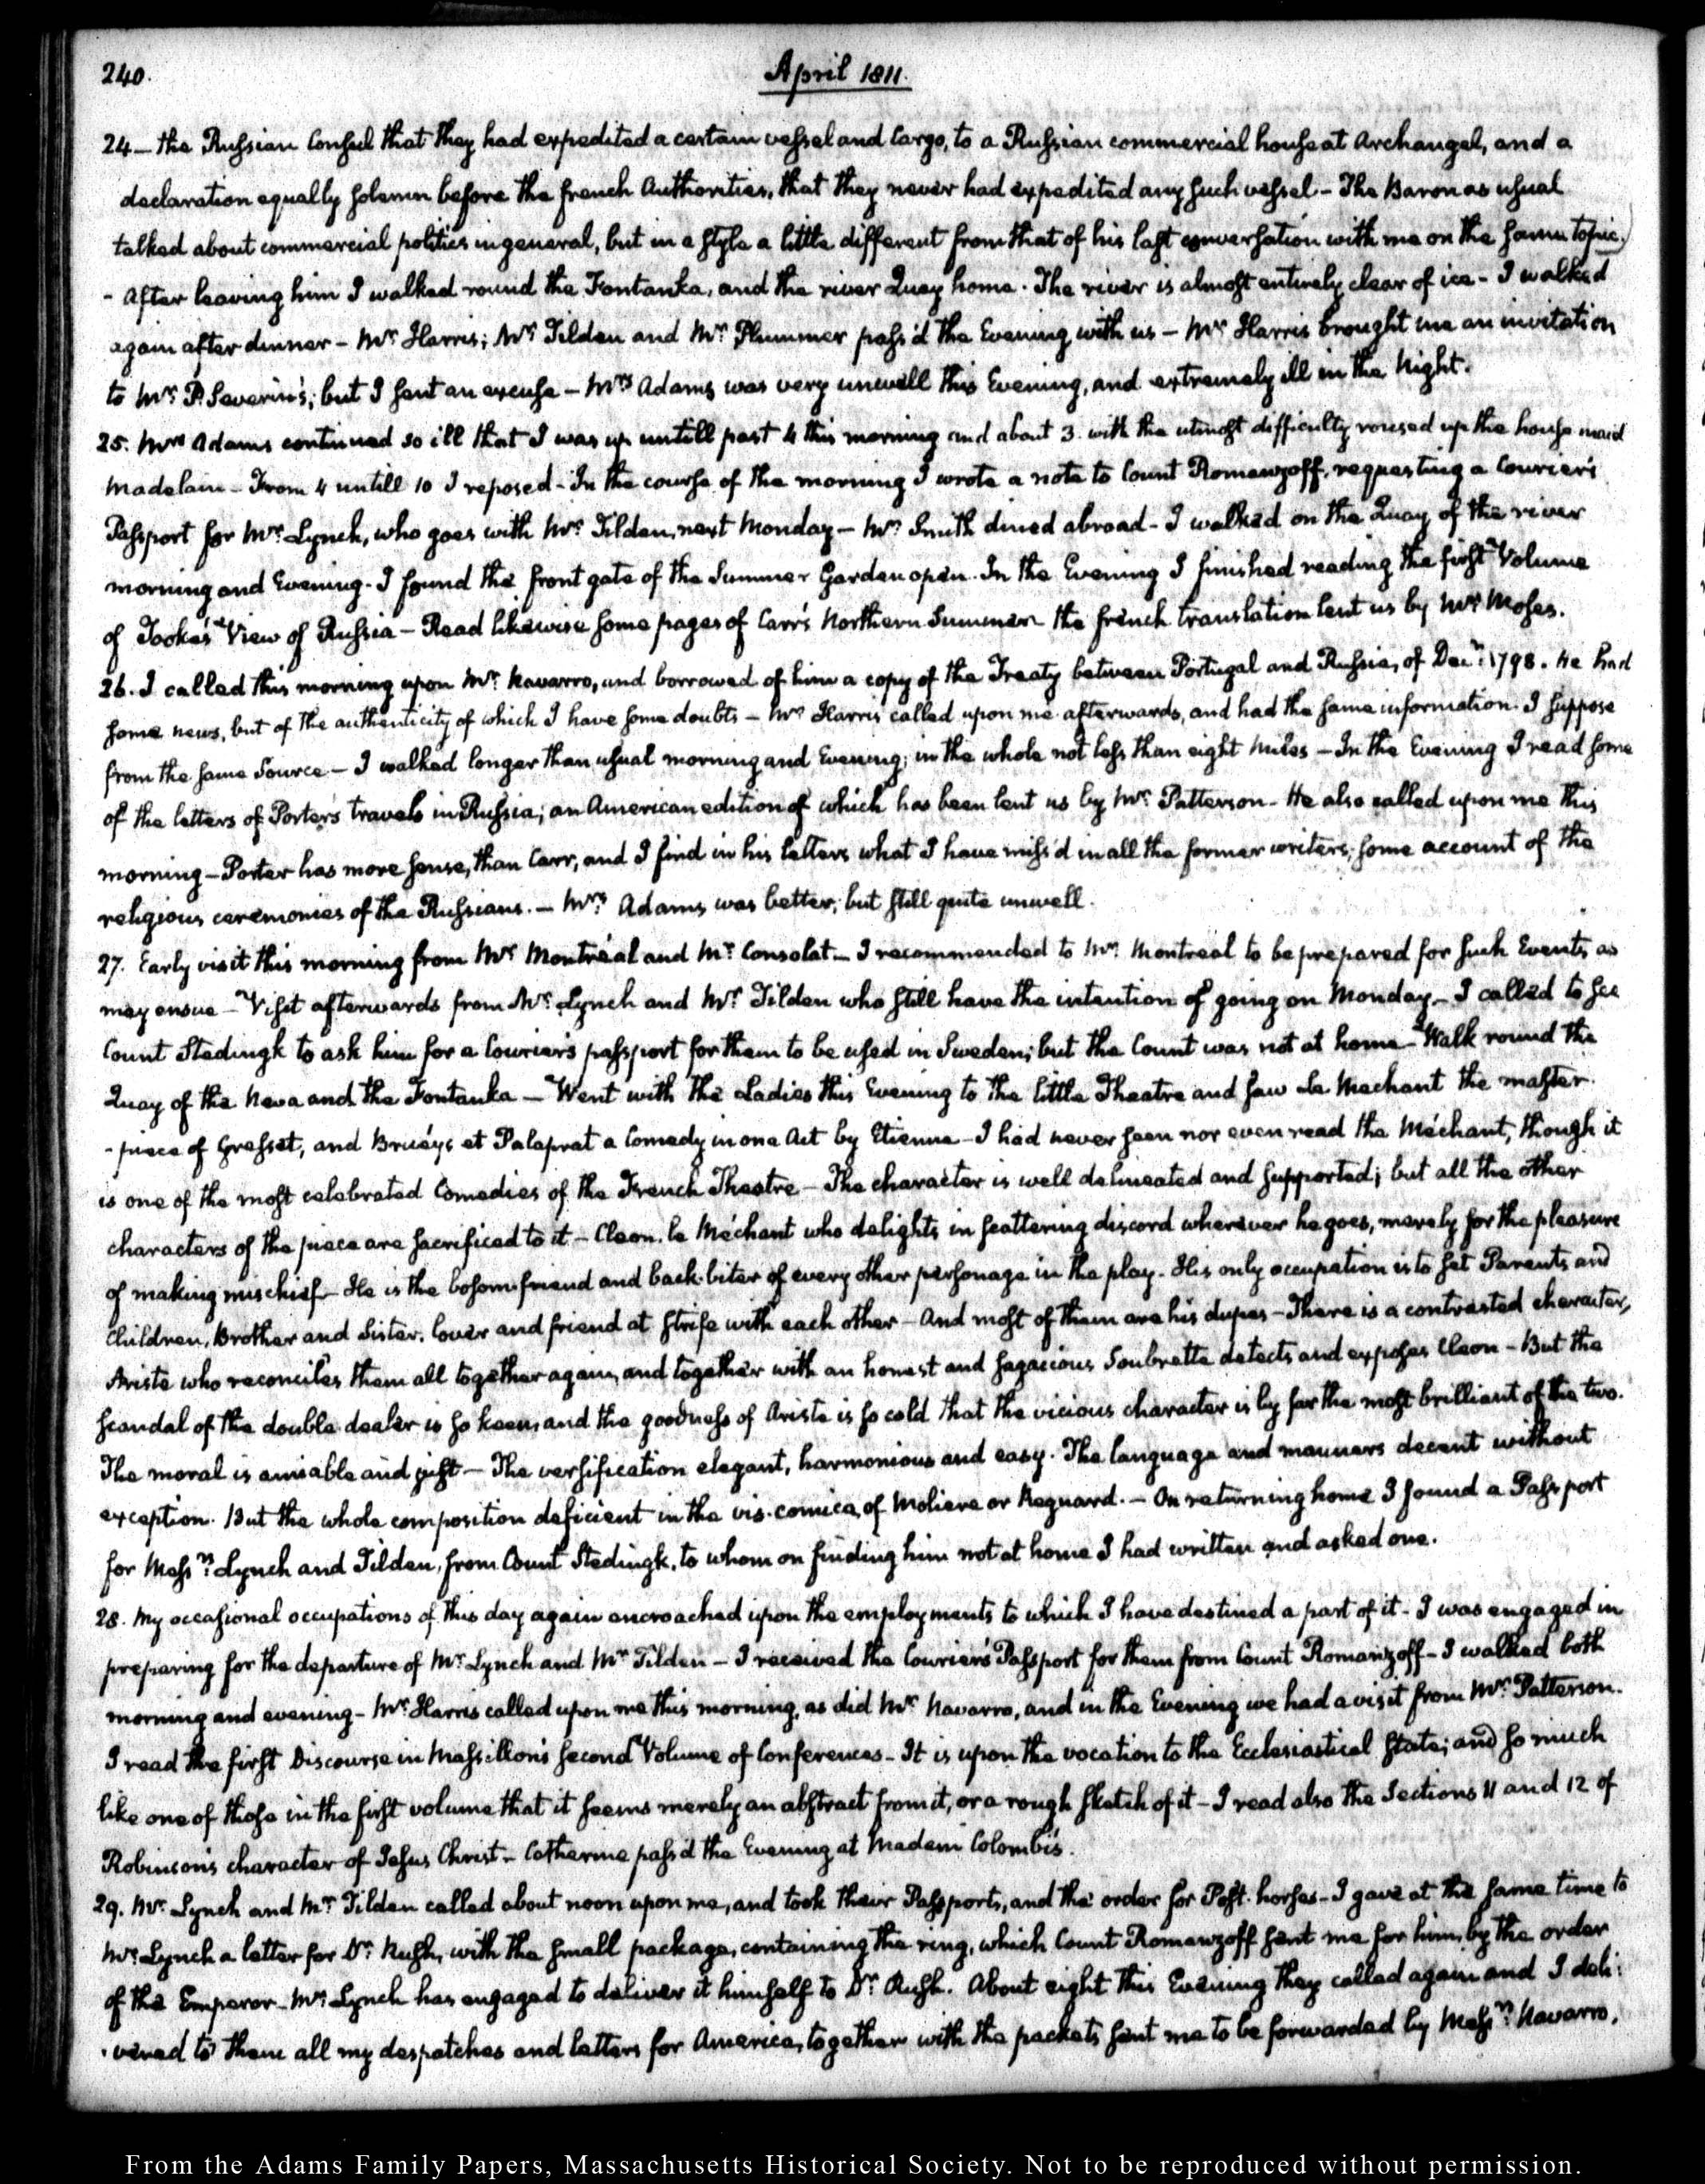 240.
April 1811.
24 — the Russian Consul that they had expedited a certain vessel and Cargo, to a Russian commercial house at Archangel, and a
declaration equally solemn before the french Authorities, that they never had expedited any such vessel — The Baron as usual
talked about commercial politics in general, but in a style a little different from that of his last conversation with me on the same topic.
- After leaving him I walked round the Fontanka, and the river Quay home. The river is almost entirely clear of ice — I walked
again after dinner — Mr. Harris; Mr. Tilden and Mr. Plummer pass'd the Evening with us — Mr. Harris brought me an invitation
to Mr. P. Severin's; but I sent an excuse — Mrs. Adams was very unwell this Evening, and extremely ill in the Night.
25. Mrs. Adams continued so ill that I was up untill past 4 this morning and about 3. with the utmost difficulty roused up the house maid
Madelain — From 4 untill 10 I reposed — In the course of the morning I wrote a note to Count Romanzoff, requesting a Courier's
Passport for Mr. Lynch, who goes with Mr. Tilden, next Monday — Mr. Smith dined abroad — I walked on the Quay of the river
morning and Evening. I found the front gate of the Summer Garden open. In the Evening I finished reading the first Volume
of Tooke's View of Russia — Read likewise some pages of Carr's Northern Summer the french translation lent us by Mr. Moses.
26. I called this morning upon Mr. Navarro, and borrowed of him a copy of the Treaty between Portugal and Russia, of Decr. 1798. He had
some news, but of the authenticity of which I have some doubts — Mr. Harris called upon me afterwards, and had the same information. I suppose
from the same Source — I walked longer than usual morning and Evening; in the whole not less than eight Miles — In the Evening I read some
of the letters of Porter's travels in Russia; an American edition of which has been lent us by Mr. Patterson — He also called upon me this
morning — Porter has more sense, than Carr, and I find in his letters what I have miss'd in all the former writers; some account of the
religious ceremonies of the Russians. — Mrs. Adams was better; but still quite unwell.
27. Early visit this morning from Mr. Montréal and Mr. Consolat — I recommended to Mr. Montreal to be prepared for such Events as
may ensue — Visit afterwards from Mr. Lynch and Mr. Tilden who still have the intention of going on Monday — I called to see
Count Stedingk to ask him for a Courier's passport for them to be used in Sweden; but the Count was not at home — Walk round the
Quay of the Neva and the Fontanka — Went with the Ladies this Evening to the little Theatre and saw Le Mechant the master
-piece of Gresset, and Bruéys et Palaprat a Comedy in one Act by Etienne — I had never seen nor even read the Méchant, though it
is one of the most celebrated Comedies of the French Theatre — The character is well delineated and supported; but all the other
characters of the piece are sacrificed to it — Cleon, le Méchant who delights in scattering discord wherever he goes, merely for the pleasure
of making mischief — He is the bosom friend and back-biter of every other personage in the play. His only occupation is to set Parents and
Children, Brother and Sister, lover and friend at strife with each other — And most of them are his dupes — There is a contrasted character,
Ariste who reconciles them all together again, and together with an honest and sagacious Soubrette detects and exposes Cleon — But the
scandal of the double dealer is so keen, and the goodness of Ariste is so cold that the vicious character is by far the most brilliant of the two.
The moral is amiable and just — The versification elegant, harmonious and easy. The language and manners decent without
exception. But the whole composition deficient in the vis-comica, of Moliere or Regnard. — On returning home I found a Passport
for Messrs. Lynch and Tilden, from Count Stedingk, to whom on finding him not at home I had written and asked one.
28. My occasional occupations of this day again encroached upon the employments to which I have destined a part of it — I was engaged in
preparing for the departure of Mr. Lynch and Mr. Tilden — I received the Courier's Passport for them from Count Romanzoff — I walked both
morning and evening — Mr. Harris called upon me this morning, as did Mr. Navarro, and in the Evening we had a visit from Mr. Patterson.
I read the first Discourse in Massillon's second Volume of Conferences — It is upon the vocation to the Ecclesiastical state; and so much
like one of those in the first volume that it seems merely an abstract from it, or a rough sketch of it — I read also the Sections 11 and 12 of
Robinson's character of Jesus Christ — Catherine pass'd the Evening at Madam Colombi's.
29. Mr. Lynch and Mr. Tilden called about noon upon me, and took their Passports, and the order for Post-horses — I gave at the same time to
Mr. Lynch a letter for Dr. Rush, with the small package, containing the ring, which Count Romanzoff sent me for him, by the order
of the Emperor. Mr. Lynch has engaged to deliver it himself to Dr. Rush. About eight this Evening they called again and I deli-
-vered to them all my despatches and letters for America, together with the packets sent me to be forwarded by Messrs. Navarro,
From the Adams Family Papers, Massachusetts Historical Society. Not to be reproduced without permission.